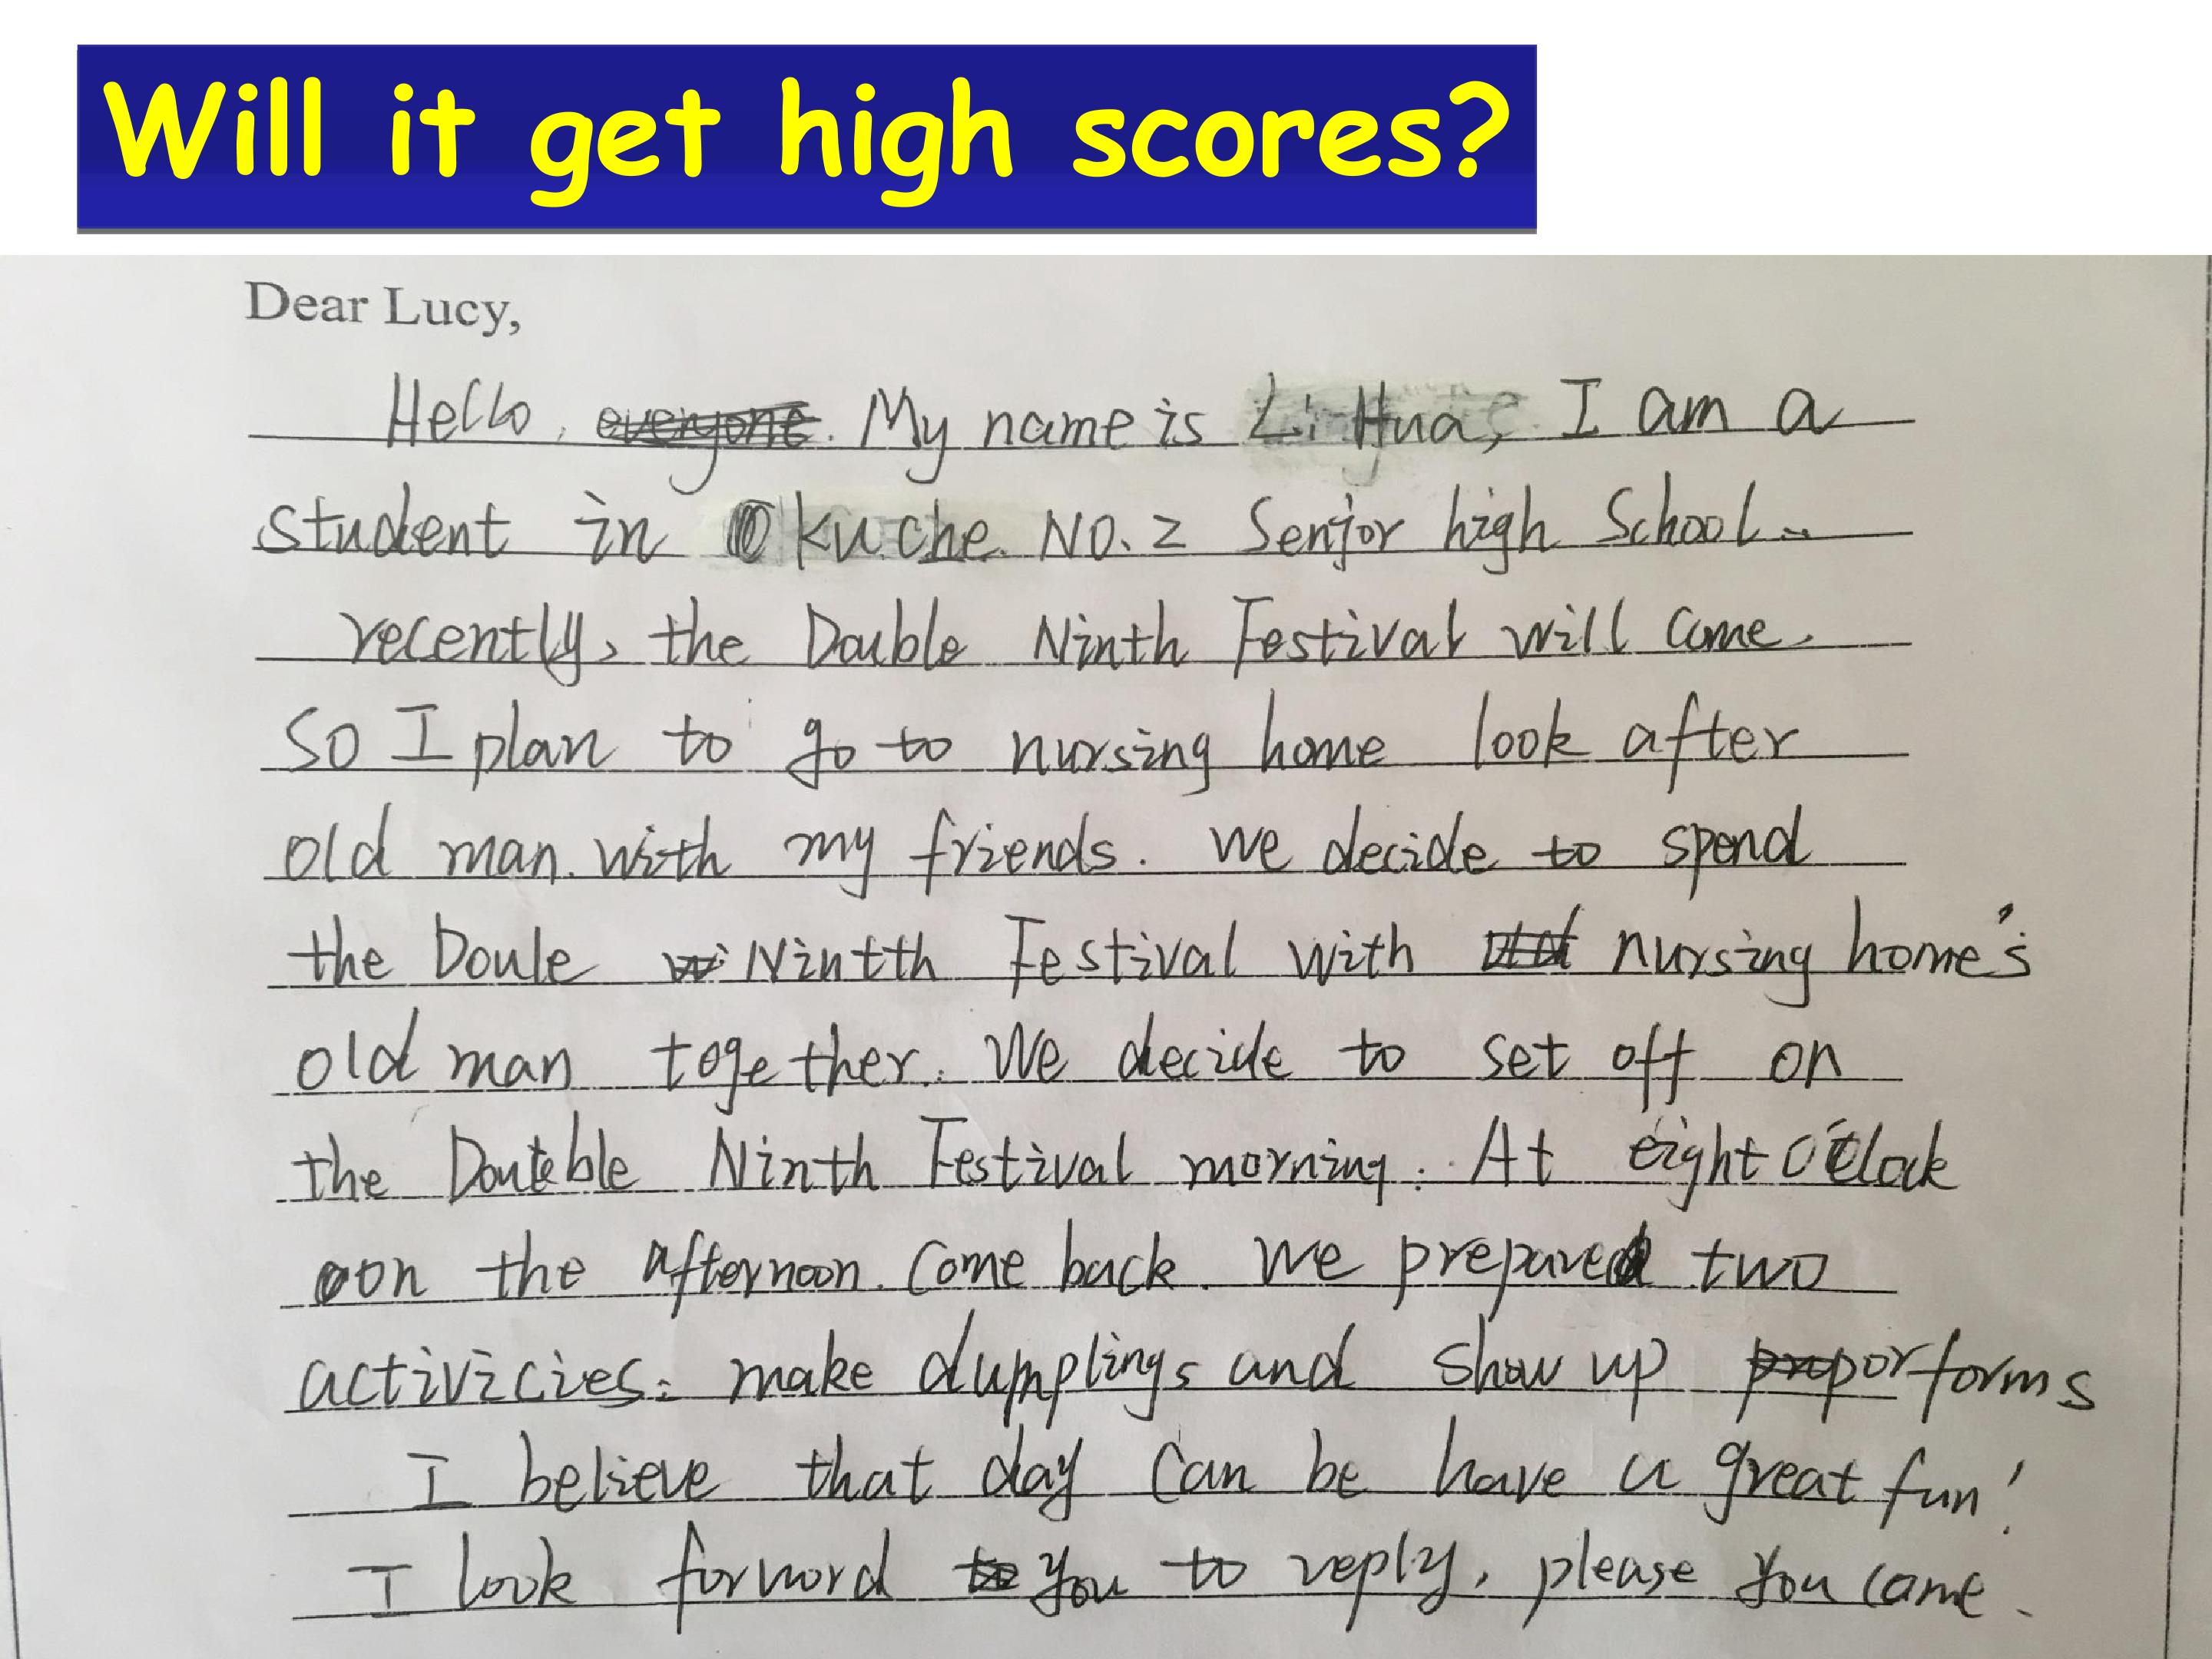 Will it get high scores?
Dear Lucy,
Hello, everyone. My name is Li Hua, I am a
student in Ku che NO. 2 Senior high School.
recently, the Double Ninth Festival will come.
So I plan to go to nursing home look after
old man with my friends. We decide to spend
the Doule Nintth Festival with nursing home's
old man together. We decide to set off on
the Double Ninth Festival morning. At eight O'clock
on the afternoon come back. We prepared two
activicies: make dumplings and show up porforms
I believe that day can be have a great fun!
I look forword you to reply, please you came.